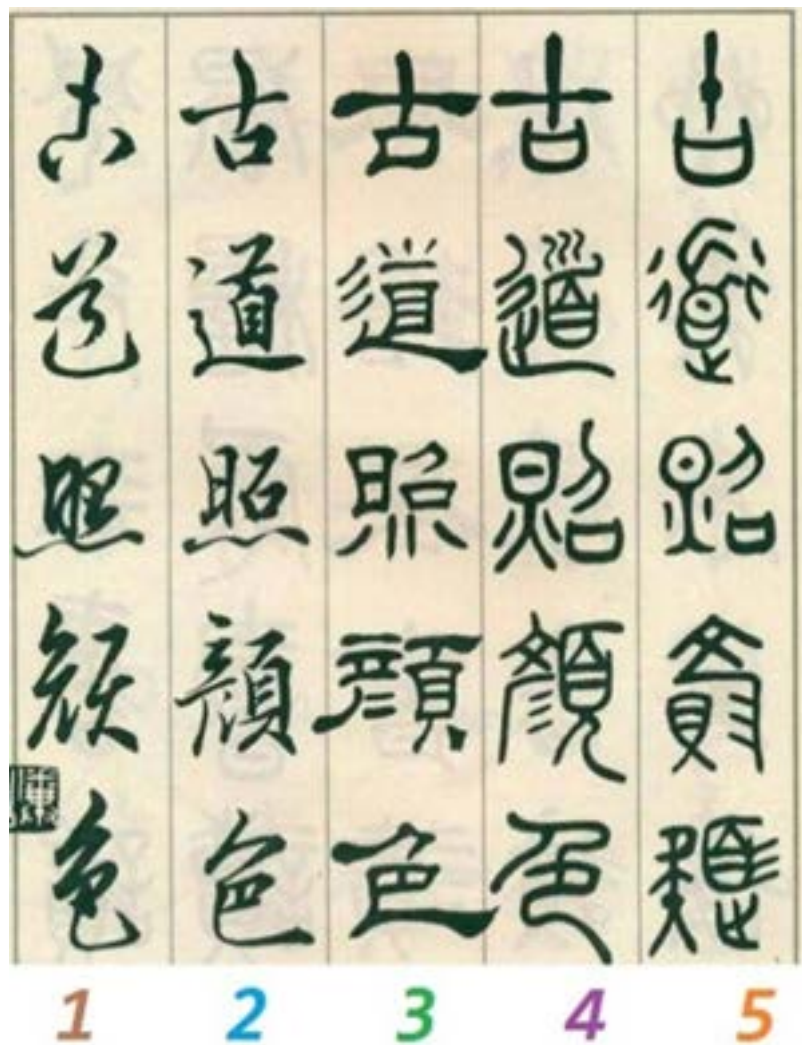 古道照顏色
古道照顏色
古道照顏色
古道照顏色
古道照顏色
1 2 3 4 5